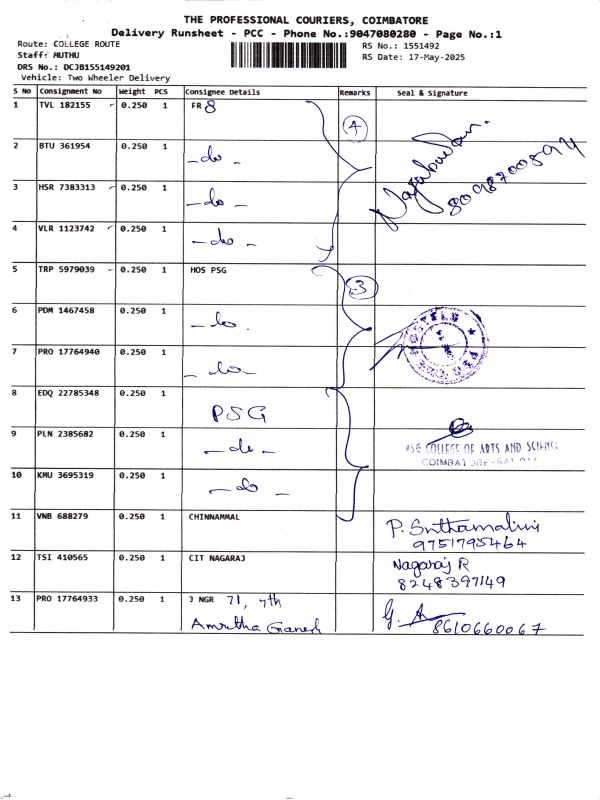 THE PROFESSIONAL COURIERS, COIMBATORE
Delivery Runsheet - PCC - Phone No.:9047080280 - Page No.:1
Route: COLLEGE ROUTE RS No.: 1551492
Staff: MUTHU RS Date: 17-May-2025
DRS No.: DCJB155149201
Vehicle: Two Wheeler Delivery
S No Consignment No Weight PCS Consignee Details Remarks Seal & Signature
1 TVL 182155 0.250 1 FR 8 4
2 BTU 361954 0.250 1 - do -
8098700594
3 HSR 7383313 0.250 1 - do -
4 VLR 1123742 0.250 1 - do -
5 TRP 5979039 0.250 1 HOS PSG 3
6 PDM 1467458 0.250 1 - do -
7 PRO 17764940 0.250 1 - do -
8 EDQ 22785348 0.250 1 PSG
9 PLN 2385682 0.250 1 - do - PSG COLLEGE OF ARTS AND SCIENCE
COIMBATORE
10 KMU 3695319 0.250 1 - do -
11 VNB 688279 0.250 1 CHINNAMMAL P. Suthamalini
9751795464
12 TSI 410565 0.250 1 CIT NAGARAJ Nagaraj R
8248397149
13 PRO 17764933 0.250 1 J NGR 71, 7th
Amrutha Ganesh 8610660067